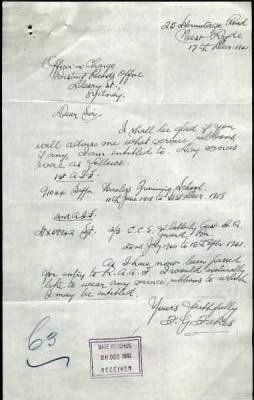 25 Hermitage Road
West Ryde
17th Decr. 1941.
Officer in Charge
District Records Office
St.,
Sydney.
Dear Sir,
I shall be glad if you
will advise me what service ribbons
if any, I am entitled to. My services
were as follows.
1st A.I.F.
Training School.
11th June 1918 to Decr 1918
2nd A.I.F.
Sgt. C.C.S. & latterly
22nd July 1940 to 15th 1941.
As I have now been passed
for entry to R.A.A.F. I would naturally
like to wear any service ribbons to which
I may be entitled.
Yours faithfully
63
BASE RECORDS
20 DEC 1941
RECEIVED